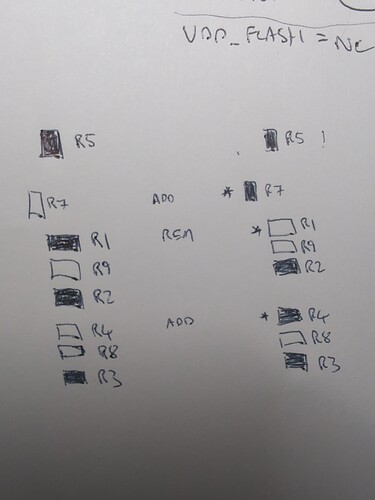 VDD_FLASH = NC
R5 R5 !
R7 ADD * R7
R1 REM * R1
R9 R9
R2 R2
R4 ADD * R4
R8 R8
R3 R3